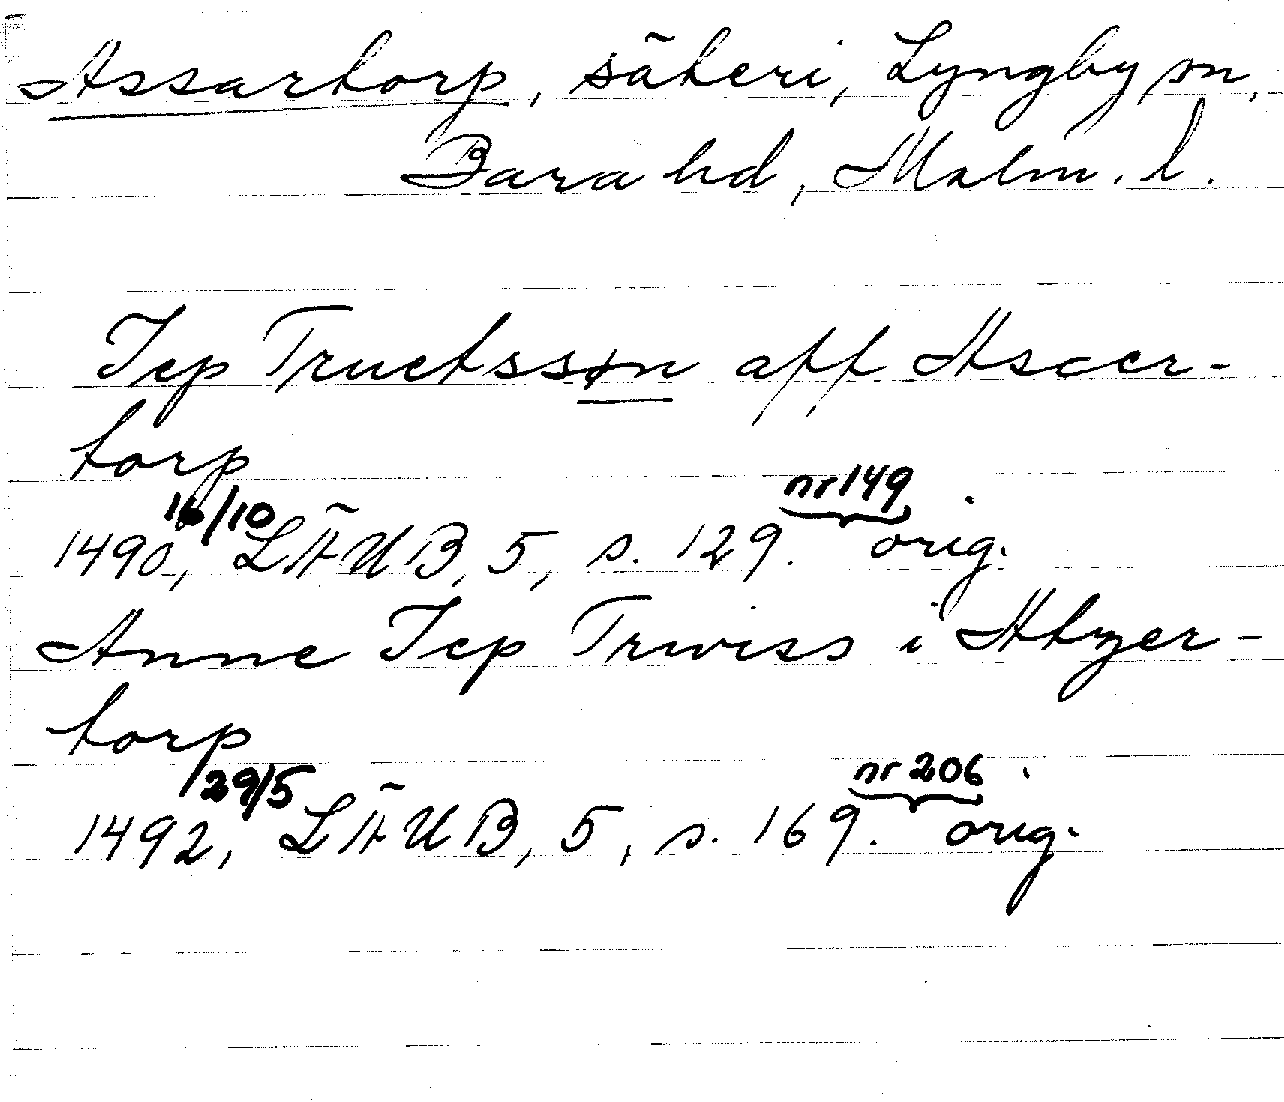 Assartorp, säteri, Lyngby sn,
Bara hd, Malm. l.
Jep Truetssøn aff Ascer-
torp
nr 149
1490, 16/10 LÄUB, 5, s. 129. orig.
Anne Jep Trwiss i Atzer-
torp
nr 206
1492, 29/5 LÄUB, 5, s. 169. orig.